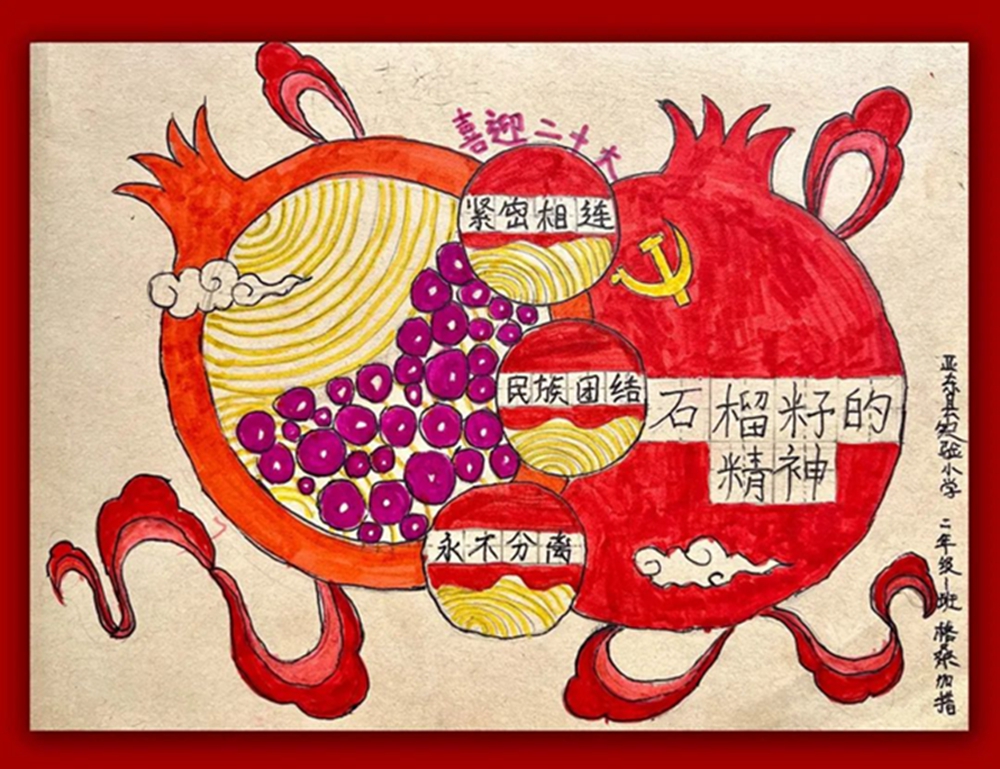 喜迎二十大
紧密相连
民族团结
永不分离
石榴籽的
精神
实验小学 二年级1班 格桑加措